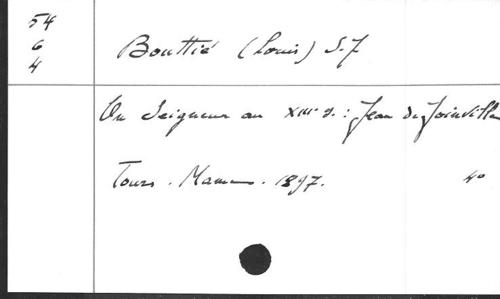 54
6
4
Bouttié (Louis) S.J
Un Seigneur au XIIIe s. : Jean de Joinville
Tours. Mame. 1897.
4°